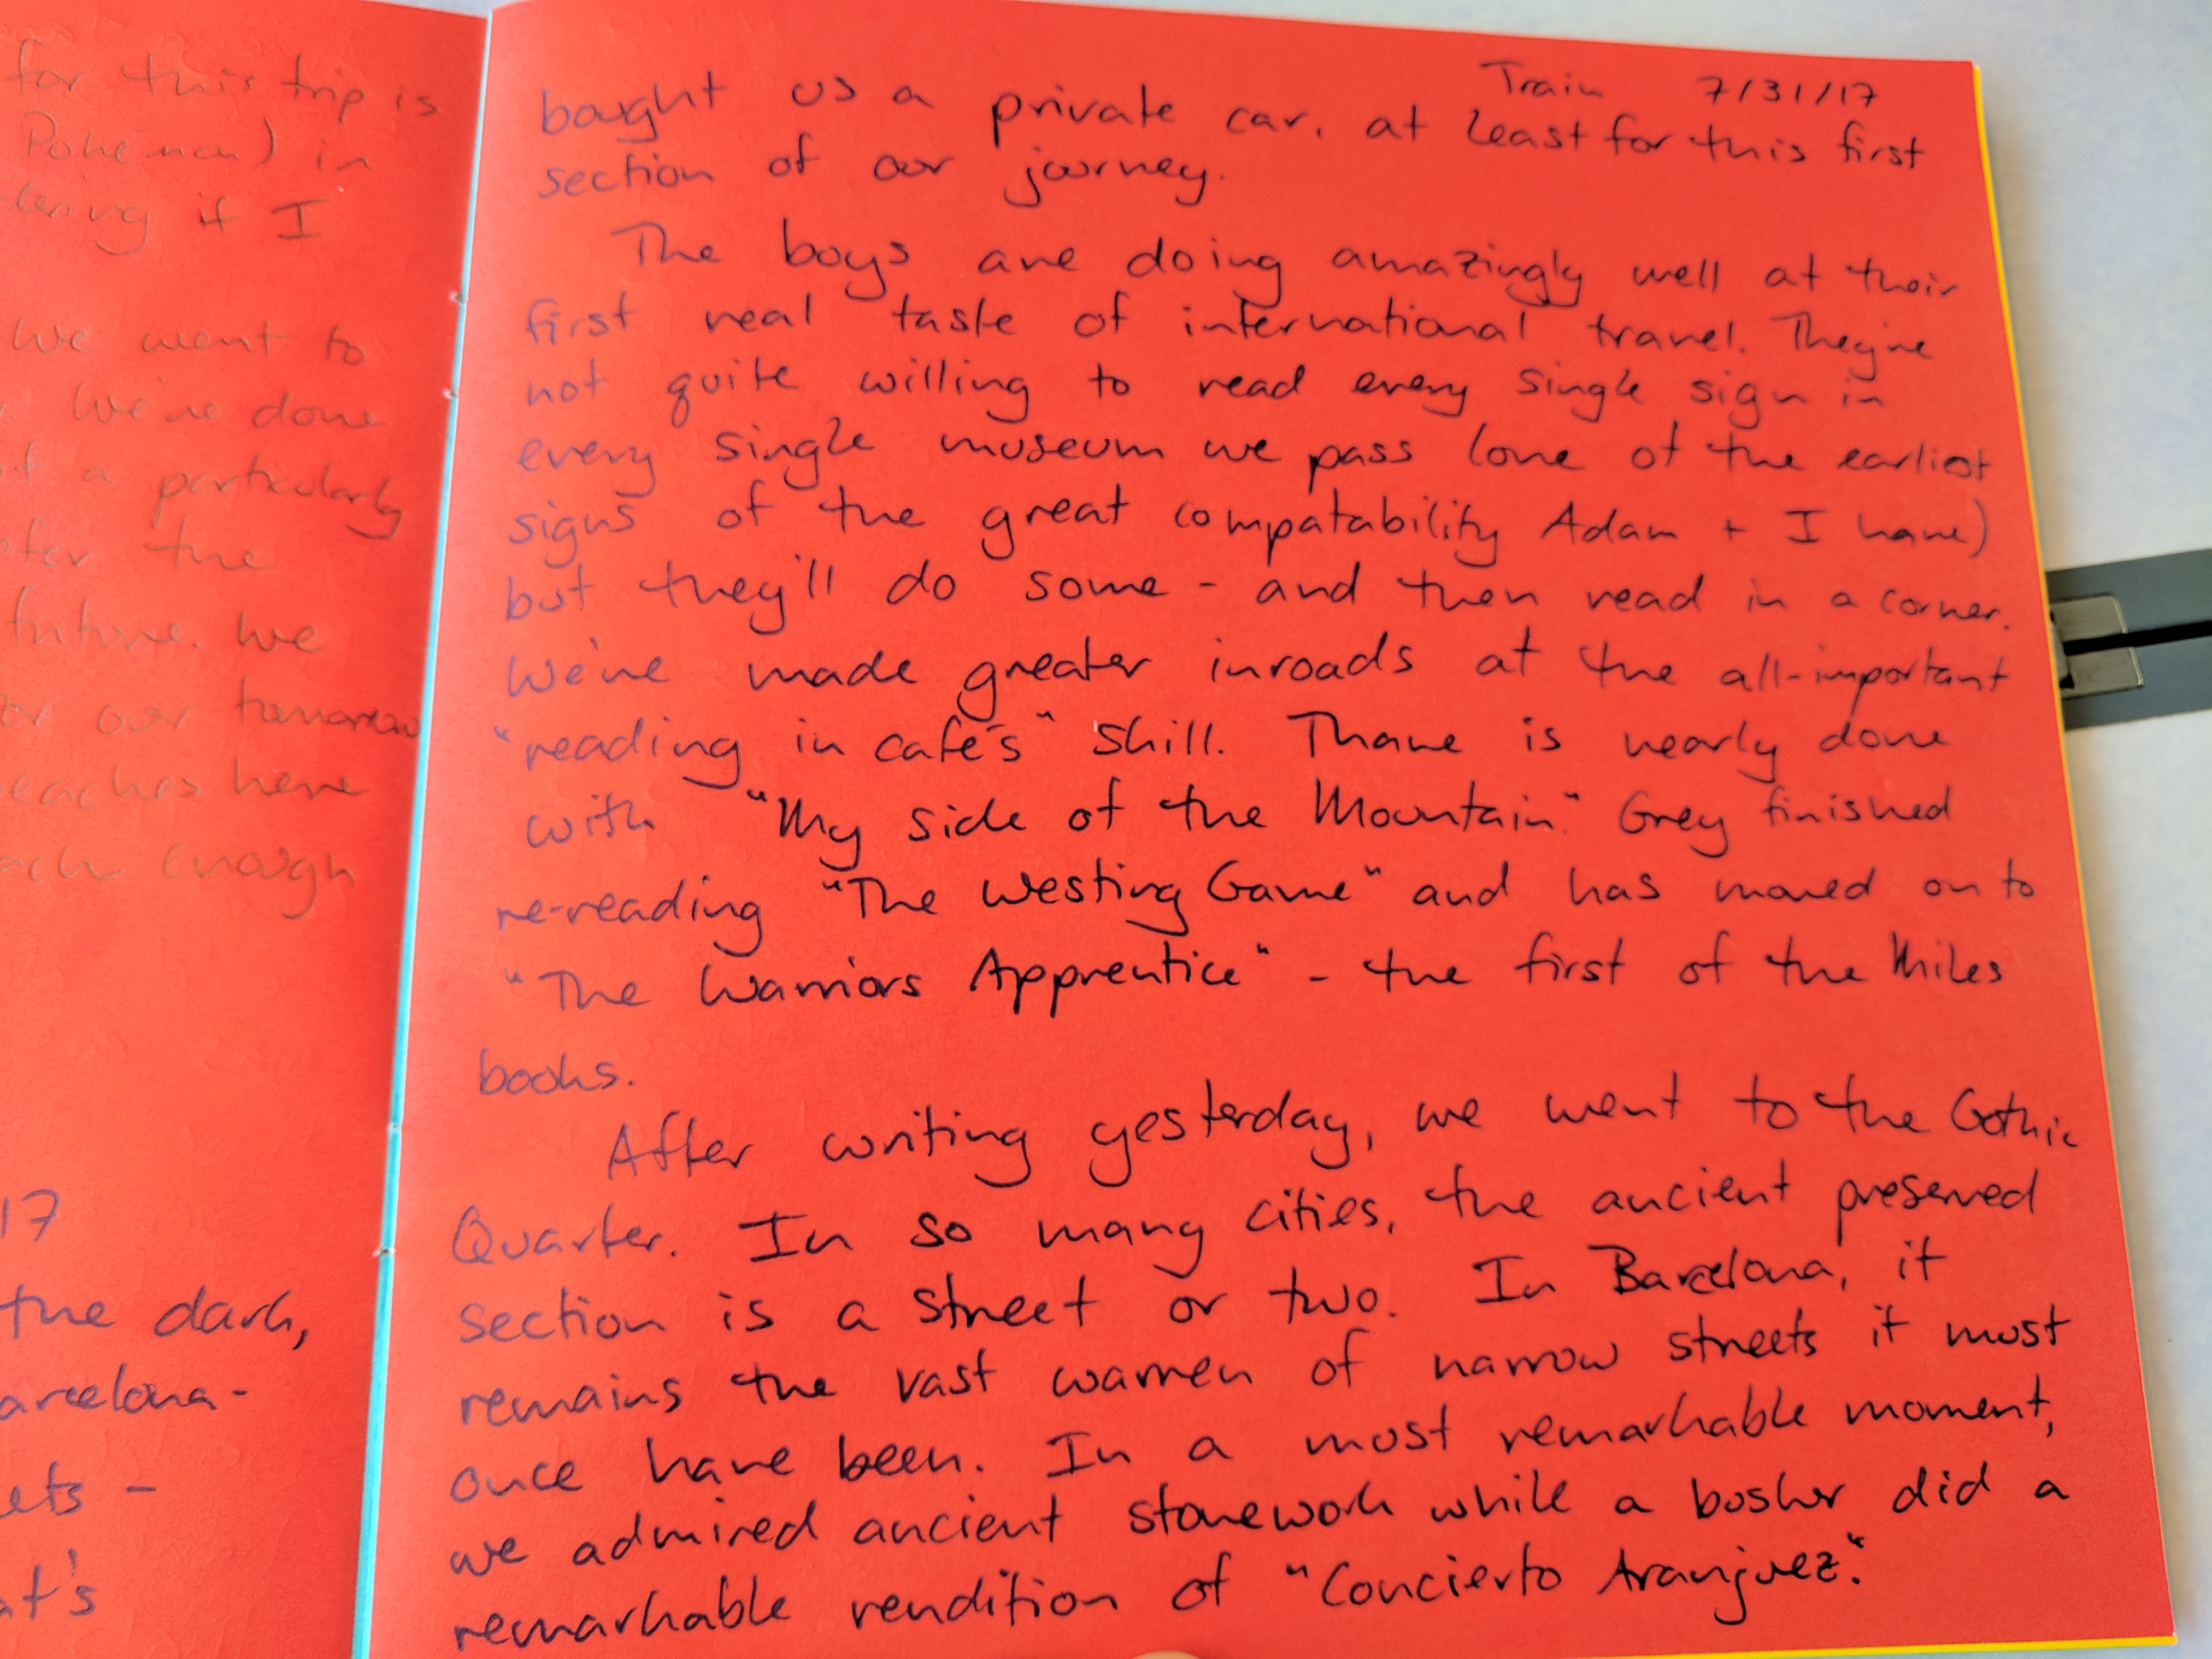 for this trip is
Pokémon) in
if I
We went to
We've done
a particularly
the
future. We
our tomorrow
here
enough
17
the dark,
arcelona-
ets -
at's
Train 7/31/17
bought us a private car, at least for this first
section of our journey.
The boys are doing amazingly well at their
first real taste of international travel. They're
not quite willing to read every single sign in
every single museum we pass (one of the earliest
signs of the great compatability Adam + I have)
but they'll do some - and then read in a corner.
We've made greater inroads at the all-important
"reading in cafés" skill. Thane is nearly done
with "My side of the Mountain." Grey finished
re-reading "The Westing Game" and has moved on to
"The Warriors Apprentice" - the first of the Miles
books.
After writing yesterday, we went to the Gothic
Quarter. In so many cities, the ancient preserved
section is a street or two. In Barcelona, it
remains the vast warren of narrow streets it must
once have been. In a most remarkable moment,
we admired ancient stonework while a busker did a
remarkable rendition of "Concierto Aranjuez."